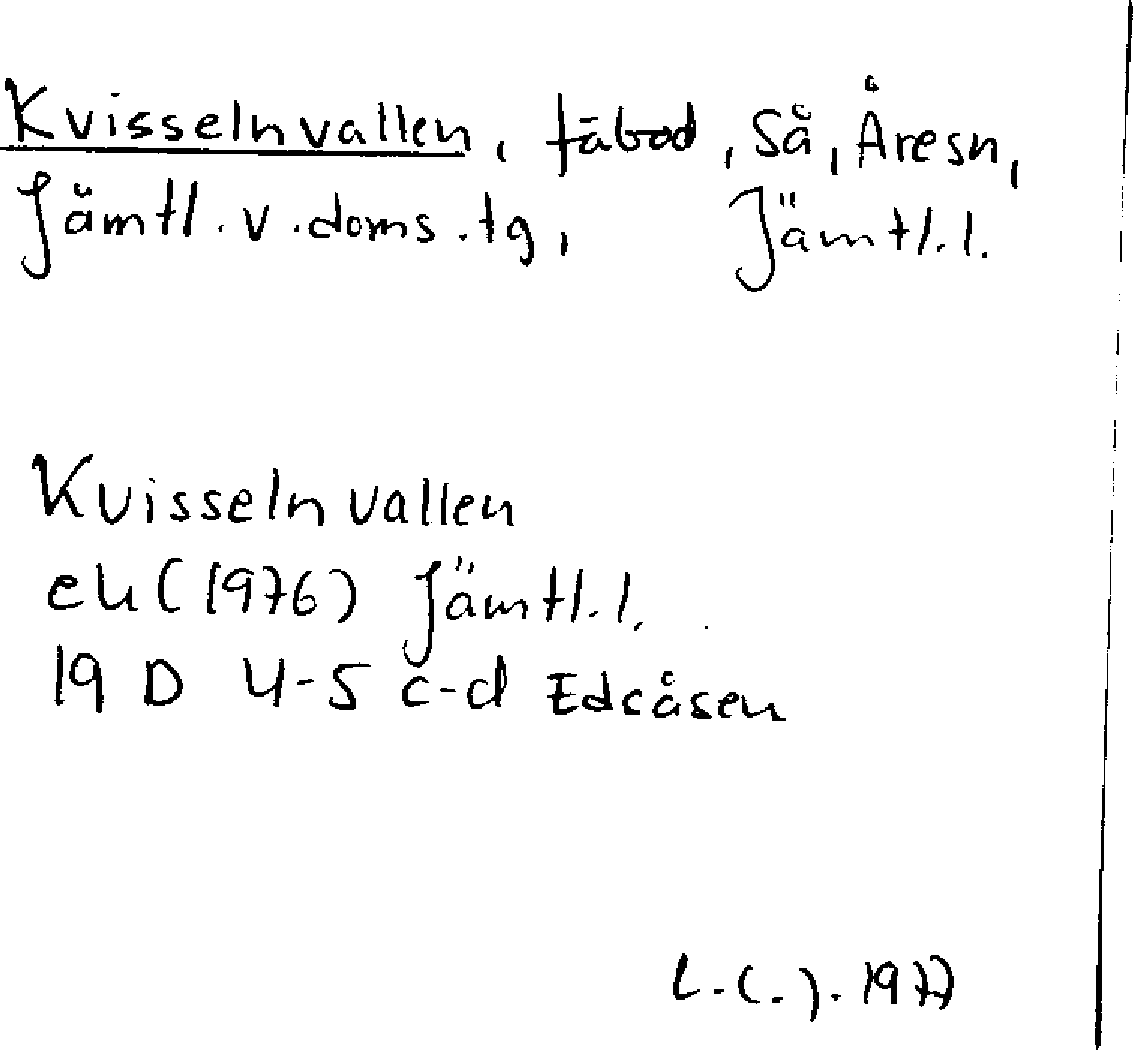 Kvisselnvallen, fäbod, Så, Åresn,
Jämtl. v. doms. tg, Jämtl. l.
Kvisselnvallen
ek (1976) Jämtl. l.
19 D 4-5 c-d Edsåsen
L.C.J. 1977